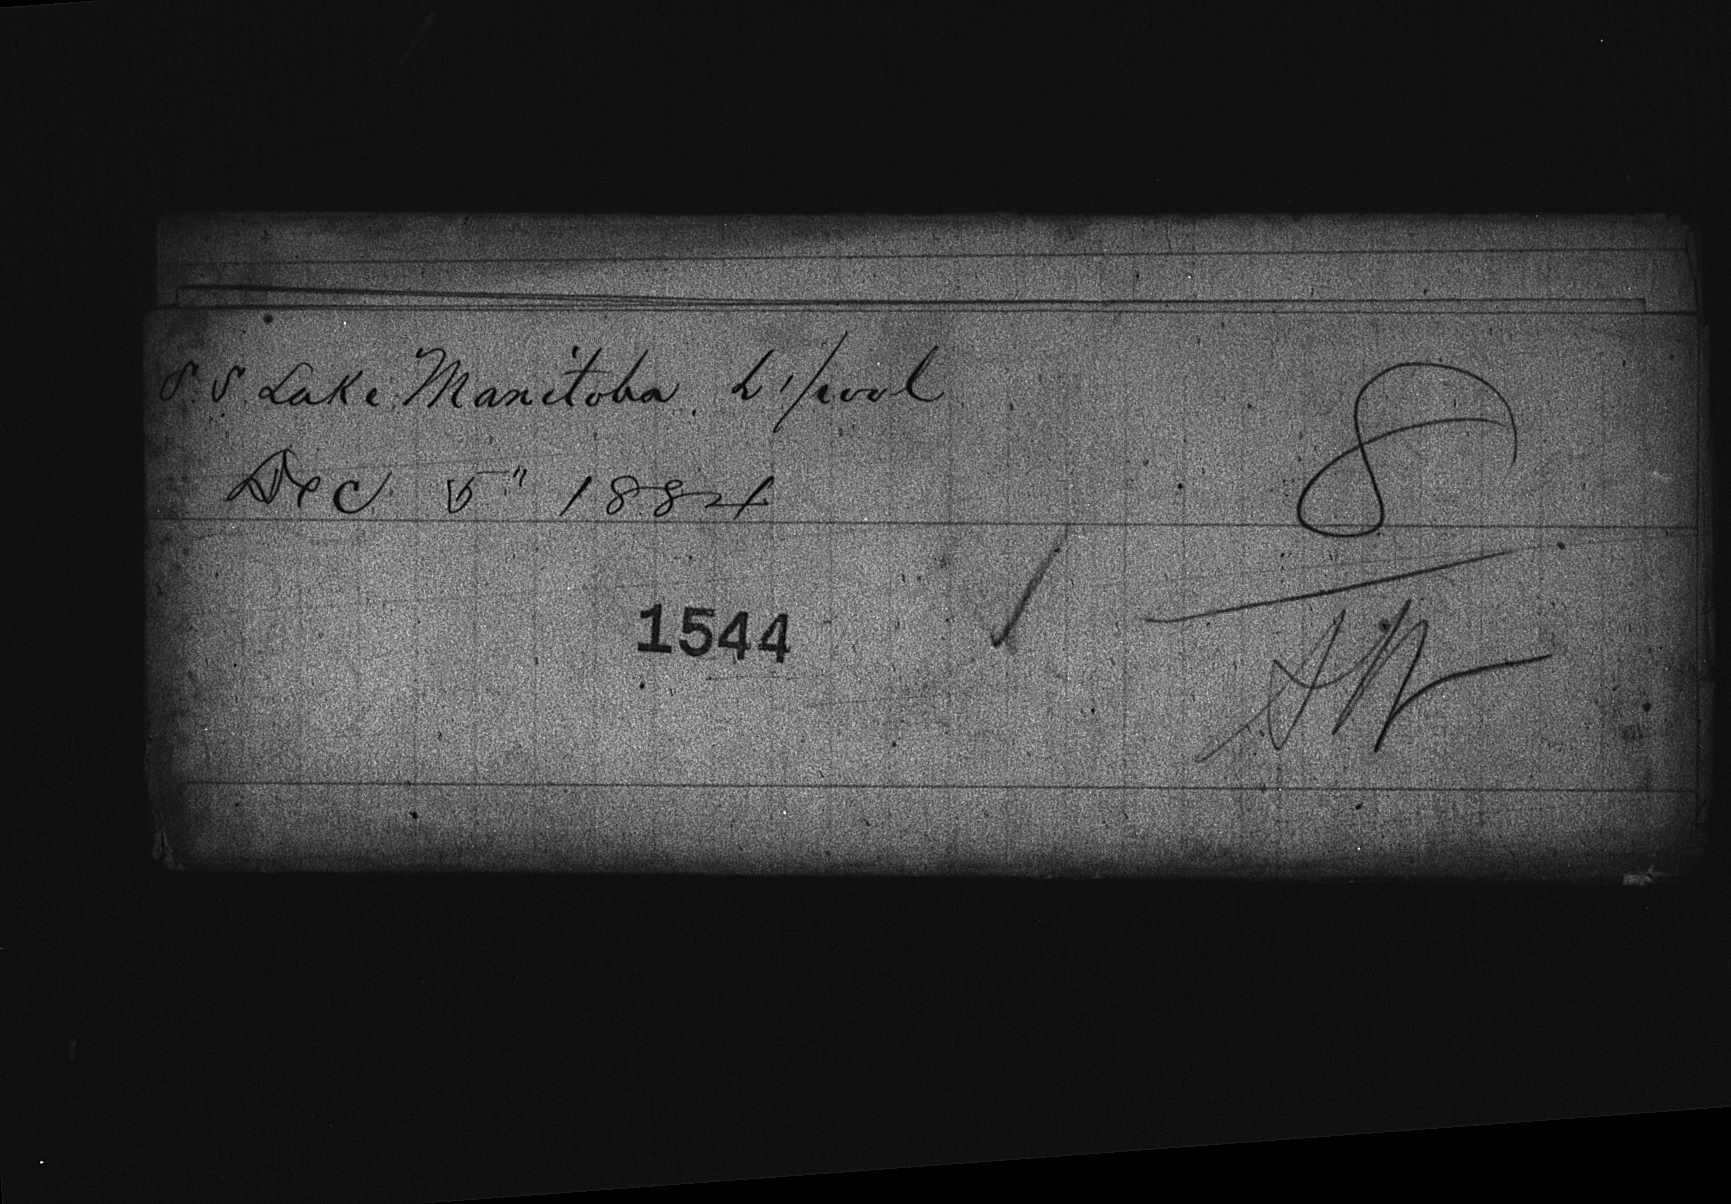 S.S. Lake Manitoba. L'pool
Dec 5" 1884
8
1544